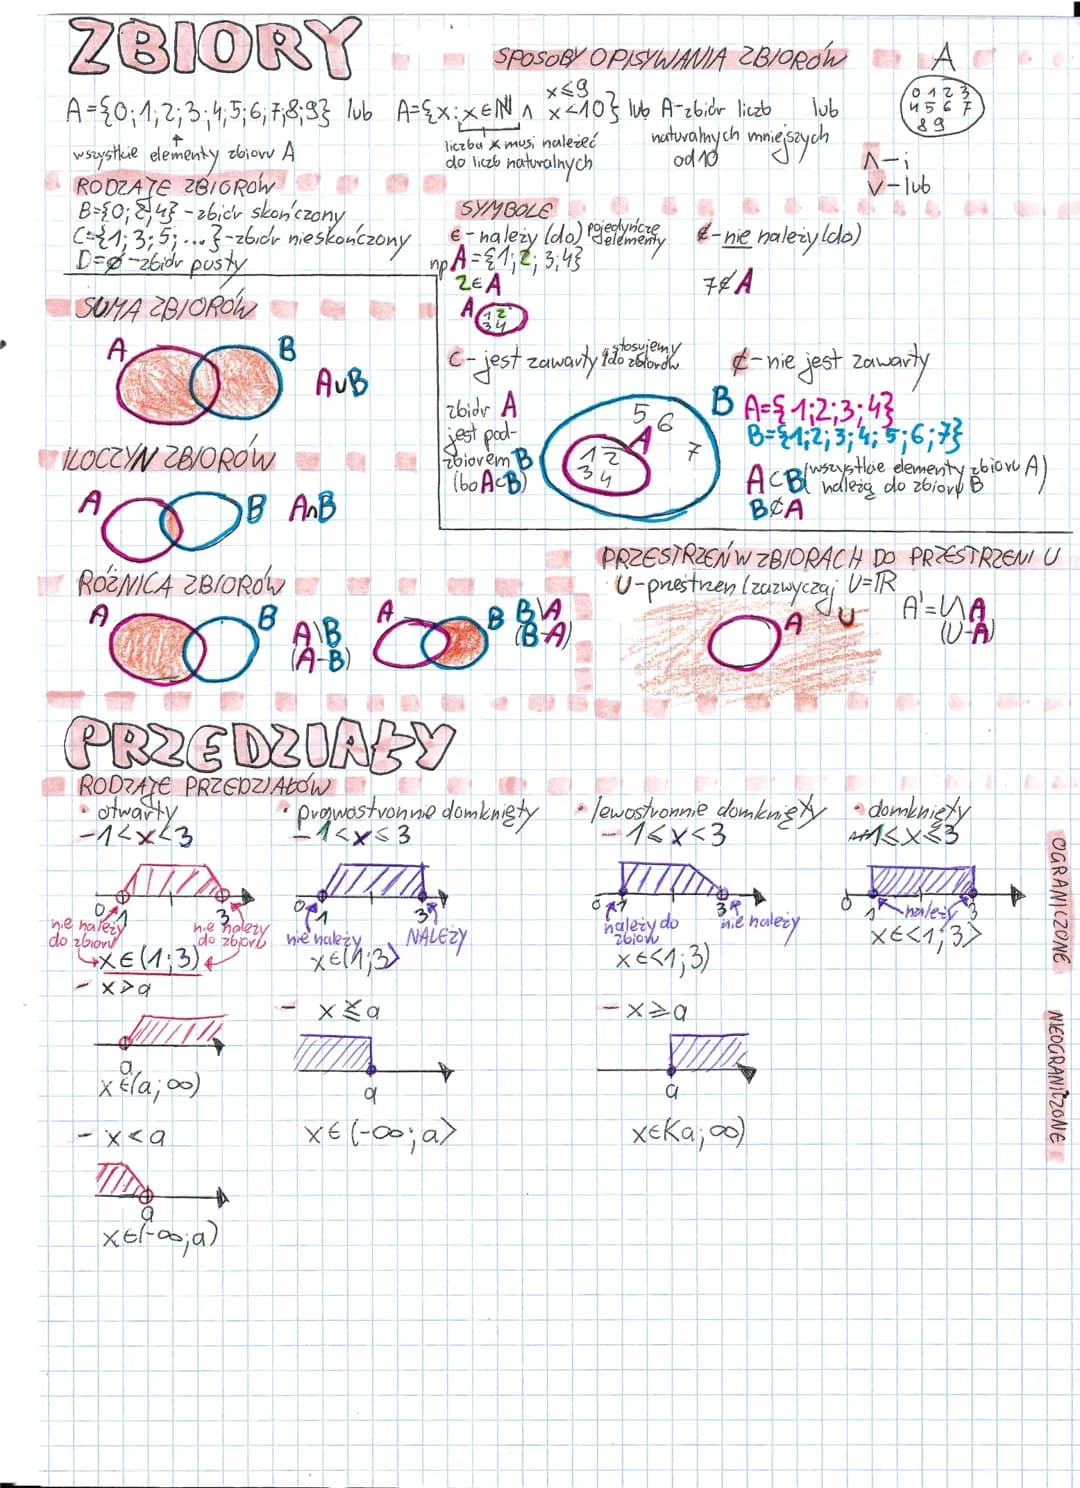 ZBIORY
SPOSOBY OPISYWANIA ZBIORÓW
A={0;1;2;3;4;5;6;7;8;9} lub A={x: x∈ℕ ∧ x<10} lub A-zbiór liczb lub
x≤9
naturalnych mniejszych
od 10
A
0 1 2 3
4 5 6 7
8 9
wszystkie elementy zbioru A
liczba x musi należeć
do liczb naturalnych
∧-i
∨-lub
RODZAJE ZBIORÓW
B={0;2;4}-zbiór skończony
C={1;3;5;...}-zbiór nieskończony
D=∅-zbiór pusty
SYMBOLE
∈-należy (do) pojedyńcze elementy
∉-nie należy (do)
np A={1;2;3;4}
2∈A
7∉A
A
1 2
3 4
⊂-jest zawarty stosujemy do zbiorów
⊄-nie jest zawarty
zbiór A
jest pod-
zbiorem B
(bo A⊂B)
5 6
7
A
1 2
3 4
B
A={1;2;3;4}
B={1;2;3;4;5;6;7}
A⊂B (wszystkie elementy zbioru A)
należą do zbioru B
B⊄A
SUMA ZBIORÓW
A B
A∪B
ILOCZYN ZBIORÓW
A B A∩B
RÓŻNICA ZBIORÓW
A B
A\B
(A-B)
A B
B\A
(B-A)
PRZESTRZEŃ W ZBIORACH DO PRZESTRZENI U
U-przestrzen (zazwyczaj U=ℝ
A U
A'=U\A
(U-A)
PRZEDZIAŁY
RODZAJE PRZEDZIAŁÓW
• otwarty
-1<x<3
0 1 3
nie należy
do zbioru
nie należy
do zbioru
x∈(1;3)
- x>a
a
x∈(a;∞)
- x<a
a
x∈(-∞;a)
• prawostronnie domknięty
-1<x≤3
0 1 3
nie należy NALEŻY
x∈(1;3>
- x≤a
a
x∈(-∞;a>
• lewostronnie domknięty
-1≤x<3
0 1 3
należy do
zbioru
nie należy
x∈<1;3)
- x≥a
a
x∈<a;∞)
• domknięty
1≤x≤3
0 1 3
należy
x∈<1;3>
OGRANICZONE
NIEOGRANICZONE